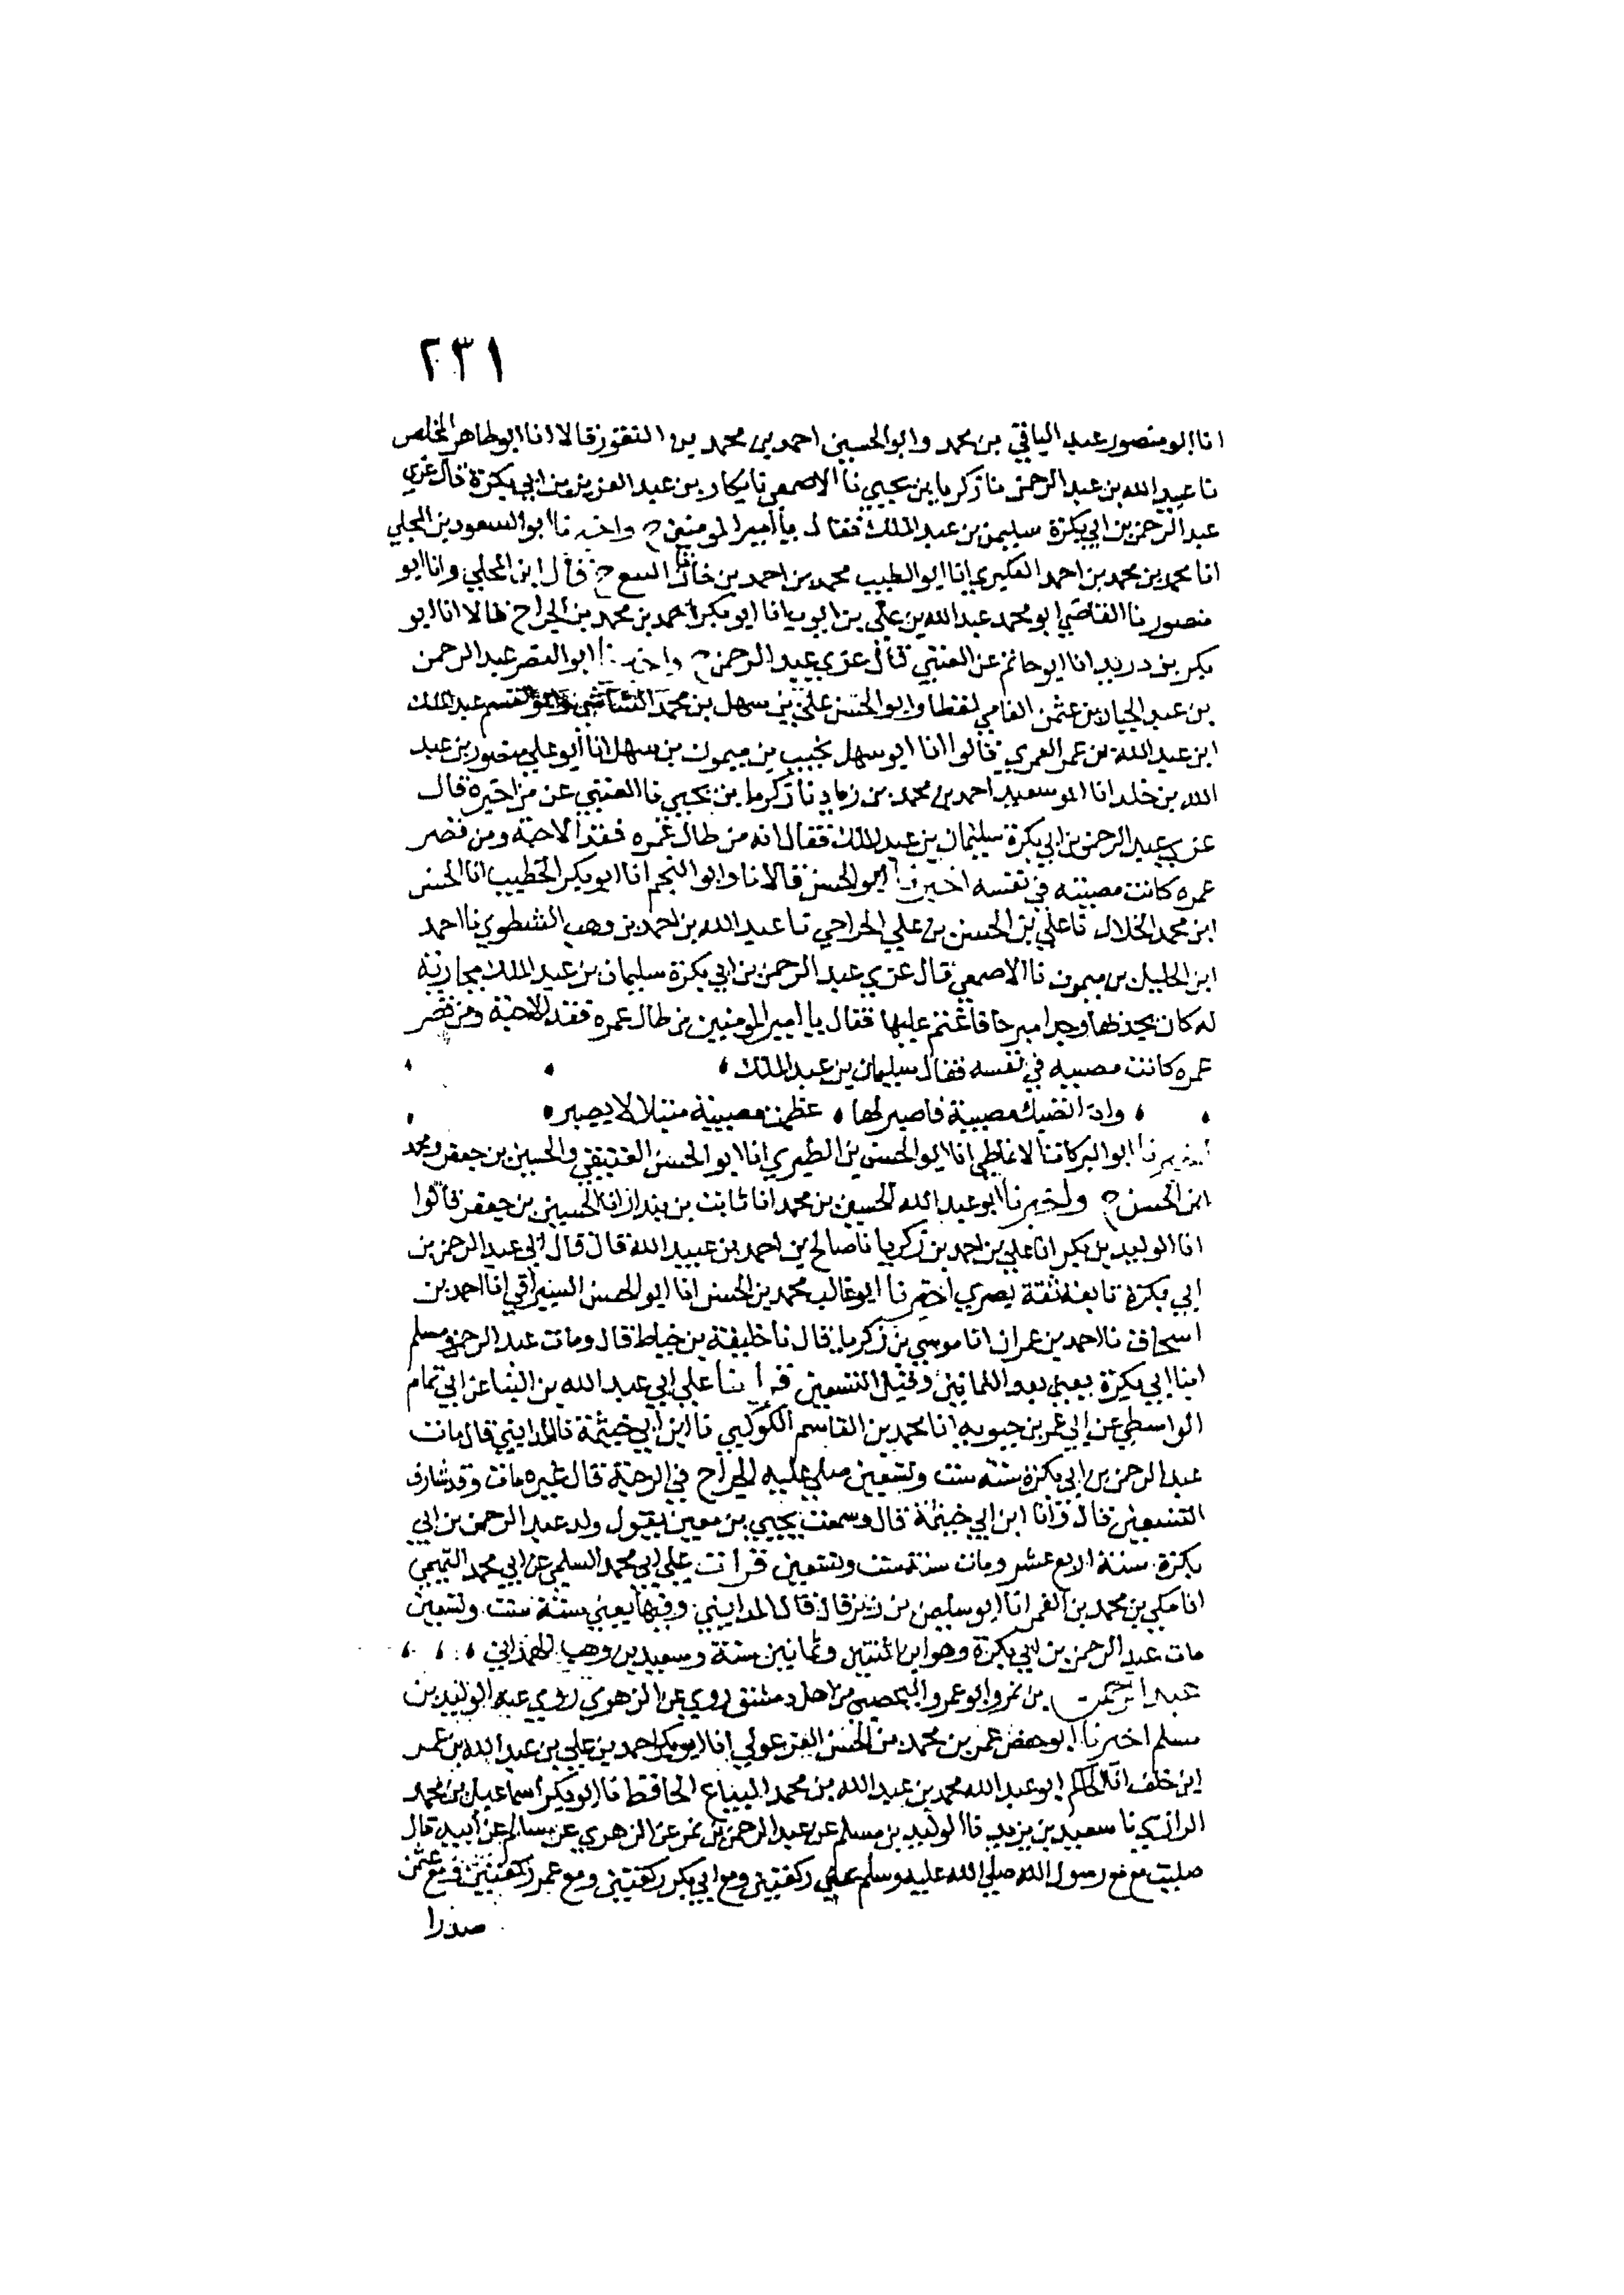 ٢٣١
انا ابو منصور عبد الباقي بن محمد وابو الحسين احمد بن محمد بن النقور قالا انا ابو طاهر المخلص
نا عبيد الله بن عبد الرحمن نا زكريا بن يحيي نا الاصمعي نا بكار بن عبد العزيز بن ابي بكرة قال عزي
عبد الرحمن بن ابي بكرة سليمن بن عبد الملك فقال يا امير المومنين ح واخبرنا ابو السعود بن المجلي
انا محمد بن محمد بن احمد العكبري انا ابو الطيب محمد بن احمد بن خاقان ح قال ابن المجلي وانا ابو
منصور نا القاضي ابو محمد عبد الله بن علي بن ايوب انا ابو بكر احمد بن محمد بن الجراح قالا انا ابو
بكر بن دريد انا ابو حاتم عن العتبي قال عزي عبد الرحمن ح واخبرنا ابو النصر عبد الرحمن
بن عبد الجبار بن عثمن الفامي لفظا وابو الحسن علي بن سهل بن محمد الشاشي وابو القسم عبد الملك
ابن عبد الله بن عمر العمري قالوا انا ابو سهل نجيب بن ميمون بن سهل انا ابو علي منصور بن عبد
الله بن خلد انا ابو سعيد احمد بن محمد بن زياد نا زكريا بن يحيي نا العتبي عن من اخبره قال
عزي عبد الرحمن بن ابي بكرة سليمان بن عبد الملك فقال انه من طال عمره فقد الاحبة ومن قصر
عمره كانت مصيبته في نفسه اخبرنا ابو الحسن قالا نا وابو النجم انا ابو بكر الخطيب انا الحسن
ابن محمد الخلال نا علي بن الحسن بن علي الجراحي نا عبد الله بن احمد بن وهب الشطوي نا احمد
ابن الخليل بن ميمون نا الاصمعي قال عزي عبد الرحمن بن ابي بكرة سليمان بن عبد الملك بجارية
له كان يجد بها وجدا مبرحا فاغتم عليها فقال يا امير المومنين من طال عمره فقد الاحبة ومن قصر
عمره كانت مصيبه في نفسه فقال سليمان بن عبد الملك
واذا اتتك مصيبة فاصبر لها عظمت مصيبة مبتلا لا يصبر
اخبرنا ابو البركات الانماطي انا ابو الحسن بن الطيوري انا ابو الحسن العتيقي والحسين بن جعفر ومحمد
ابن الحسن ح واخبرنا ابو عبد الله الحسين بن محمد انا ثابت بن بندار انا الحسين بن جعفر قالوا
انا الوليد بن بكر انا علي بن احمد بن زكريا نا صالح بن احمد بن عبيد الله قال قال ابي عبد الرحمن بن
ابي بكرة تابعه ثقة بصري اخبرنا ابو غالب محمد بن الحسن انا ابو الحسن السيرافي انا احمد بن
اسحاق نا احمد بن عمران انا موسي بن زكريا قال نا خليفة بن خياط قال ومات عبد الرحمن ومسلم
ابنا ابي بكرة يعني بعد الثمانين وقبل التسعين قرانا علي ابي عبد الله بن البنا عن ابي تمام
الواسطي عن ابي عمر بن حيويه انا محمد بن القاسم الكوكبي نا ابن ابي خيثمة نا المدايني قال مات
عبد الرحمن بن ابي بكرة سنة ست وتسعين صلي عليه الجراح في الرحبة قال غيره مات وقد شارف
التسعين قال وانا ابن ابي خيثمة قال وسمعت يحيي بن معين يقول ولد عبد الرحمن بن ابي
بكرة سنة اربع عشر ومات سنة ست وتسعين قرات علي ابي محمد السلمي عن ابي محمد التميمي
انا مكي بن محمد بن الغمر انا ابو سليمن بن زبر قال قال المدايني وفيها يعني سنة ست وتسعين
مات عبد الرحمن بن ابي بكرة وهو ابن اثنتين وثمانين سنة وسعيد بن وهب الهمداني
عبد الرحمن بن نمر وابو عمرو اليحصبي من اهل دمشق روي عن الزهري روي عنه الوليد بن
مسلم اخبرنا ابو حفص عمر بن محمد بن الحسن الفرغولي انا ابو بكر احمد بن علي بن عبد الله بن عمر
ابن خلف انا الحاكم ابو عبد الله محمد بن عبد الله بن محمد البياع الحافظ نا ابو بكر اسماعيل بن محمد
الرازي نا سعيد بن يزيد نا الوليد بن مسلم عن عبد الرحمن بن نمر عن الزهري عن سالم عن ابيه قال
صليت مع رسول الله صلي الله عليه وسلم ركعتين ومع ابي بكر ركعتين ومع عمر ركعتين ومع عثمن
صدرا